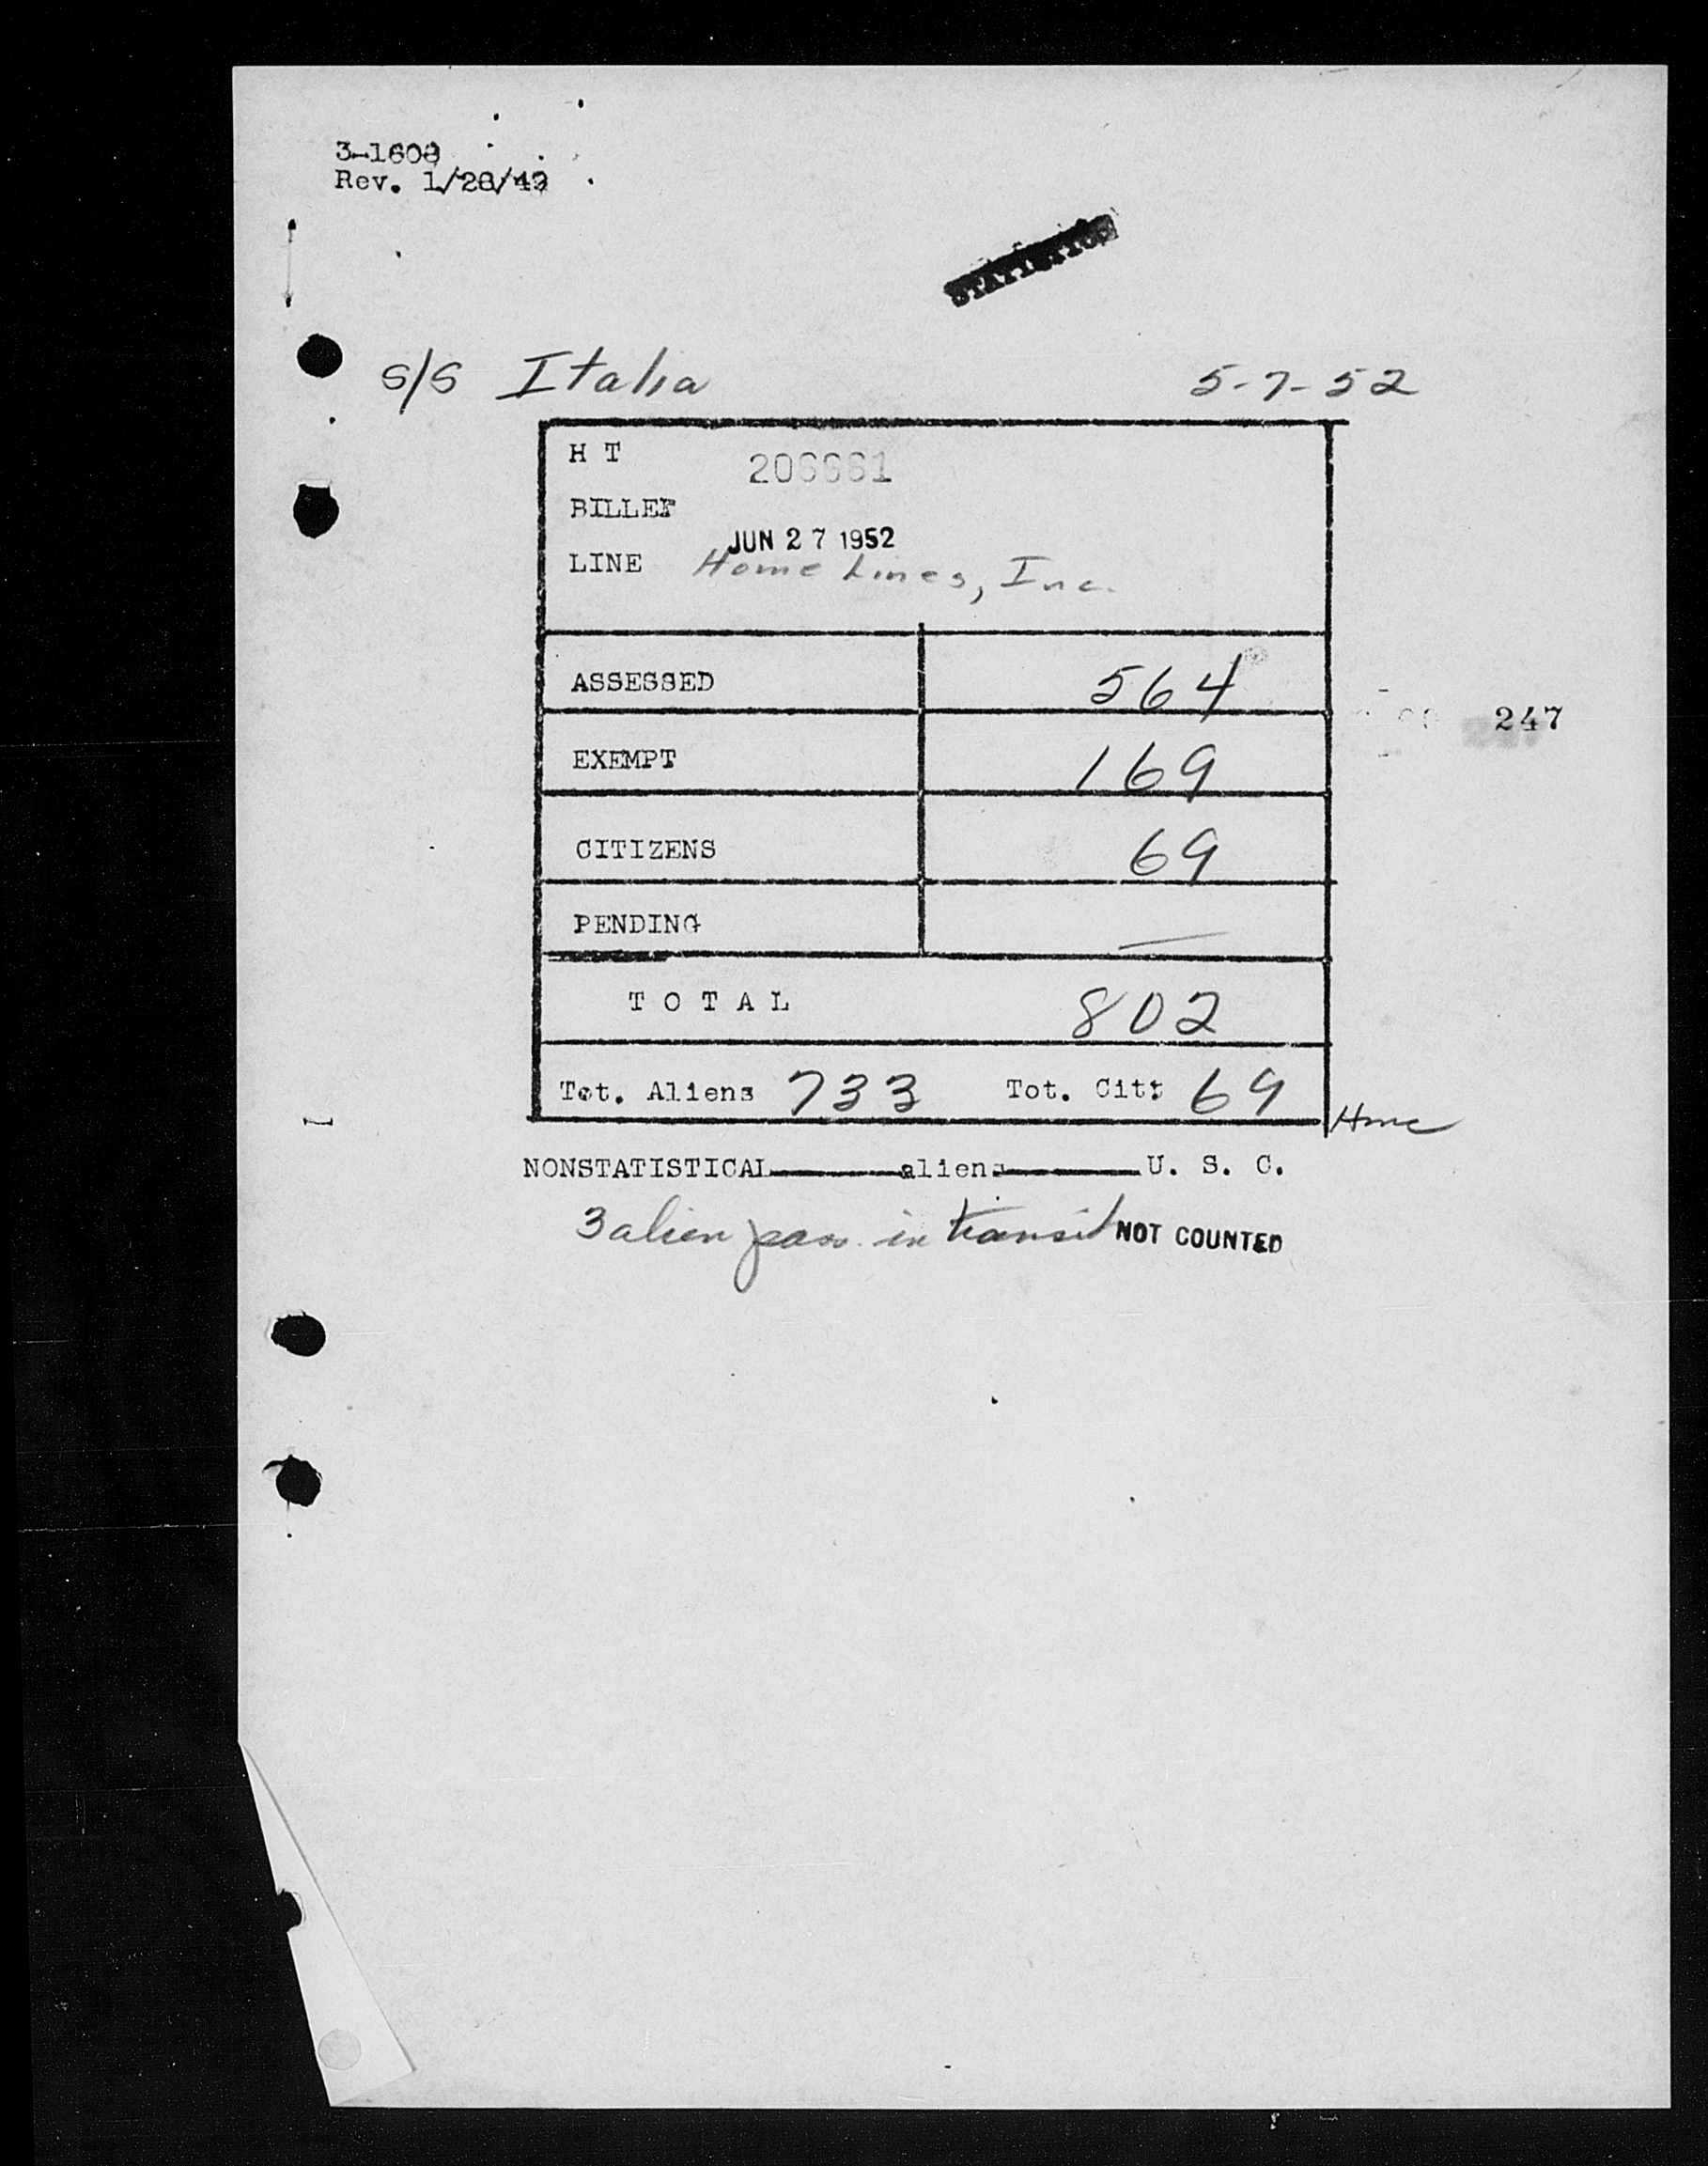 3-1608
Rev. 1/28/49
STATISTICS
S/S Italia 5-7-52
H T 206661
BILLED
JUN 27 1952
LINE Home Lines, Inc.
ASSESSED 564
247
EXEMPT 169
CITIZENS 69
PENDING —
T O T A L 802
Tot. Aliens 733 Tot. Cit: 69
NONSTATISTICAL aliens U. S. C.
3 alien pass. in transit NOT COUNTED